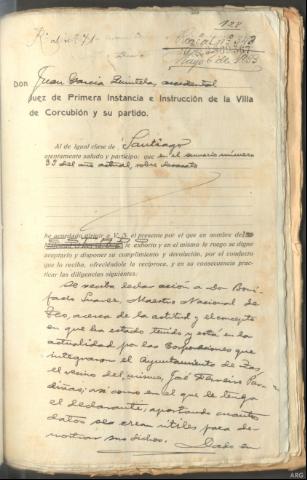 122
DON Juan García Quintela, accidental
Juez de Primera Instancia e Instrucción de la Villa
de Corcubión y su partido.
Al de igual clase de Santiago
atentamente saludo y participo: que en el sumario número
39 del año actual, sobre desacato
he acordado dirigir a V. S. el presente por el que en nombre de
le exhorto y en el mismo le ruego se digne
aceptarlo y disponer su cumplimiento y devolución, por el conducto
que lo reciba, ofreciéndole la recíproca, y en su consecuencia prac-
ticar las diligencias siguientes:
Se reciba declaración a don Boni-
facio, Maestro Nacional de
acerca de la actitud y el concepto
en que ha estado tenido y está en la
actualidad por las Corporaciones que
integraron el Ayuntamiento de
el vecino del mismo, José Ferreiro
así como en el que le tenga
el declarante, aportando cuantos
datos se crean útiles para de-
mostrar sus dichos. Dado en
ARG